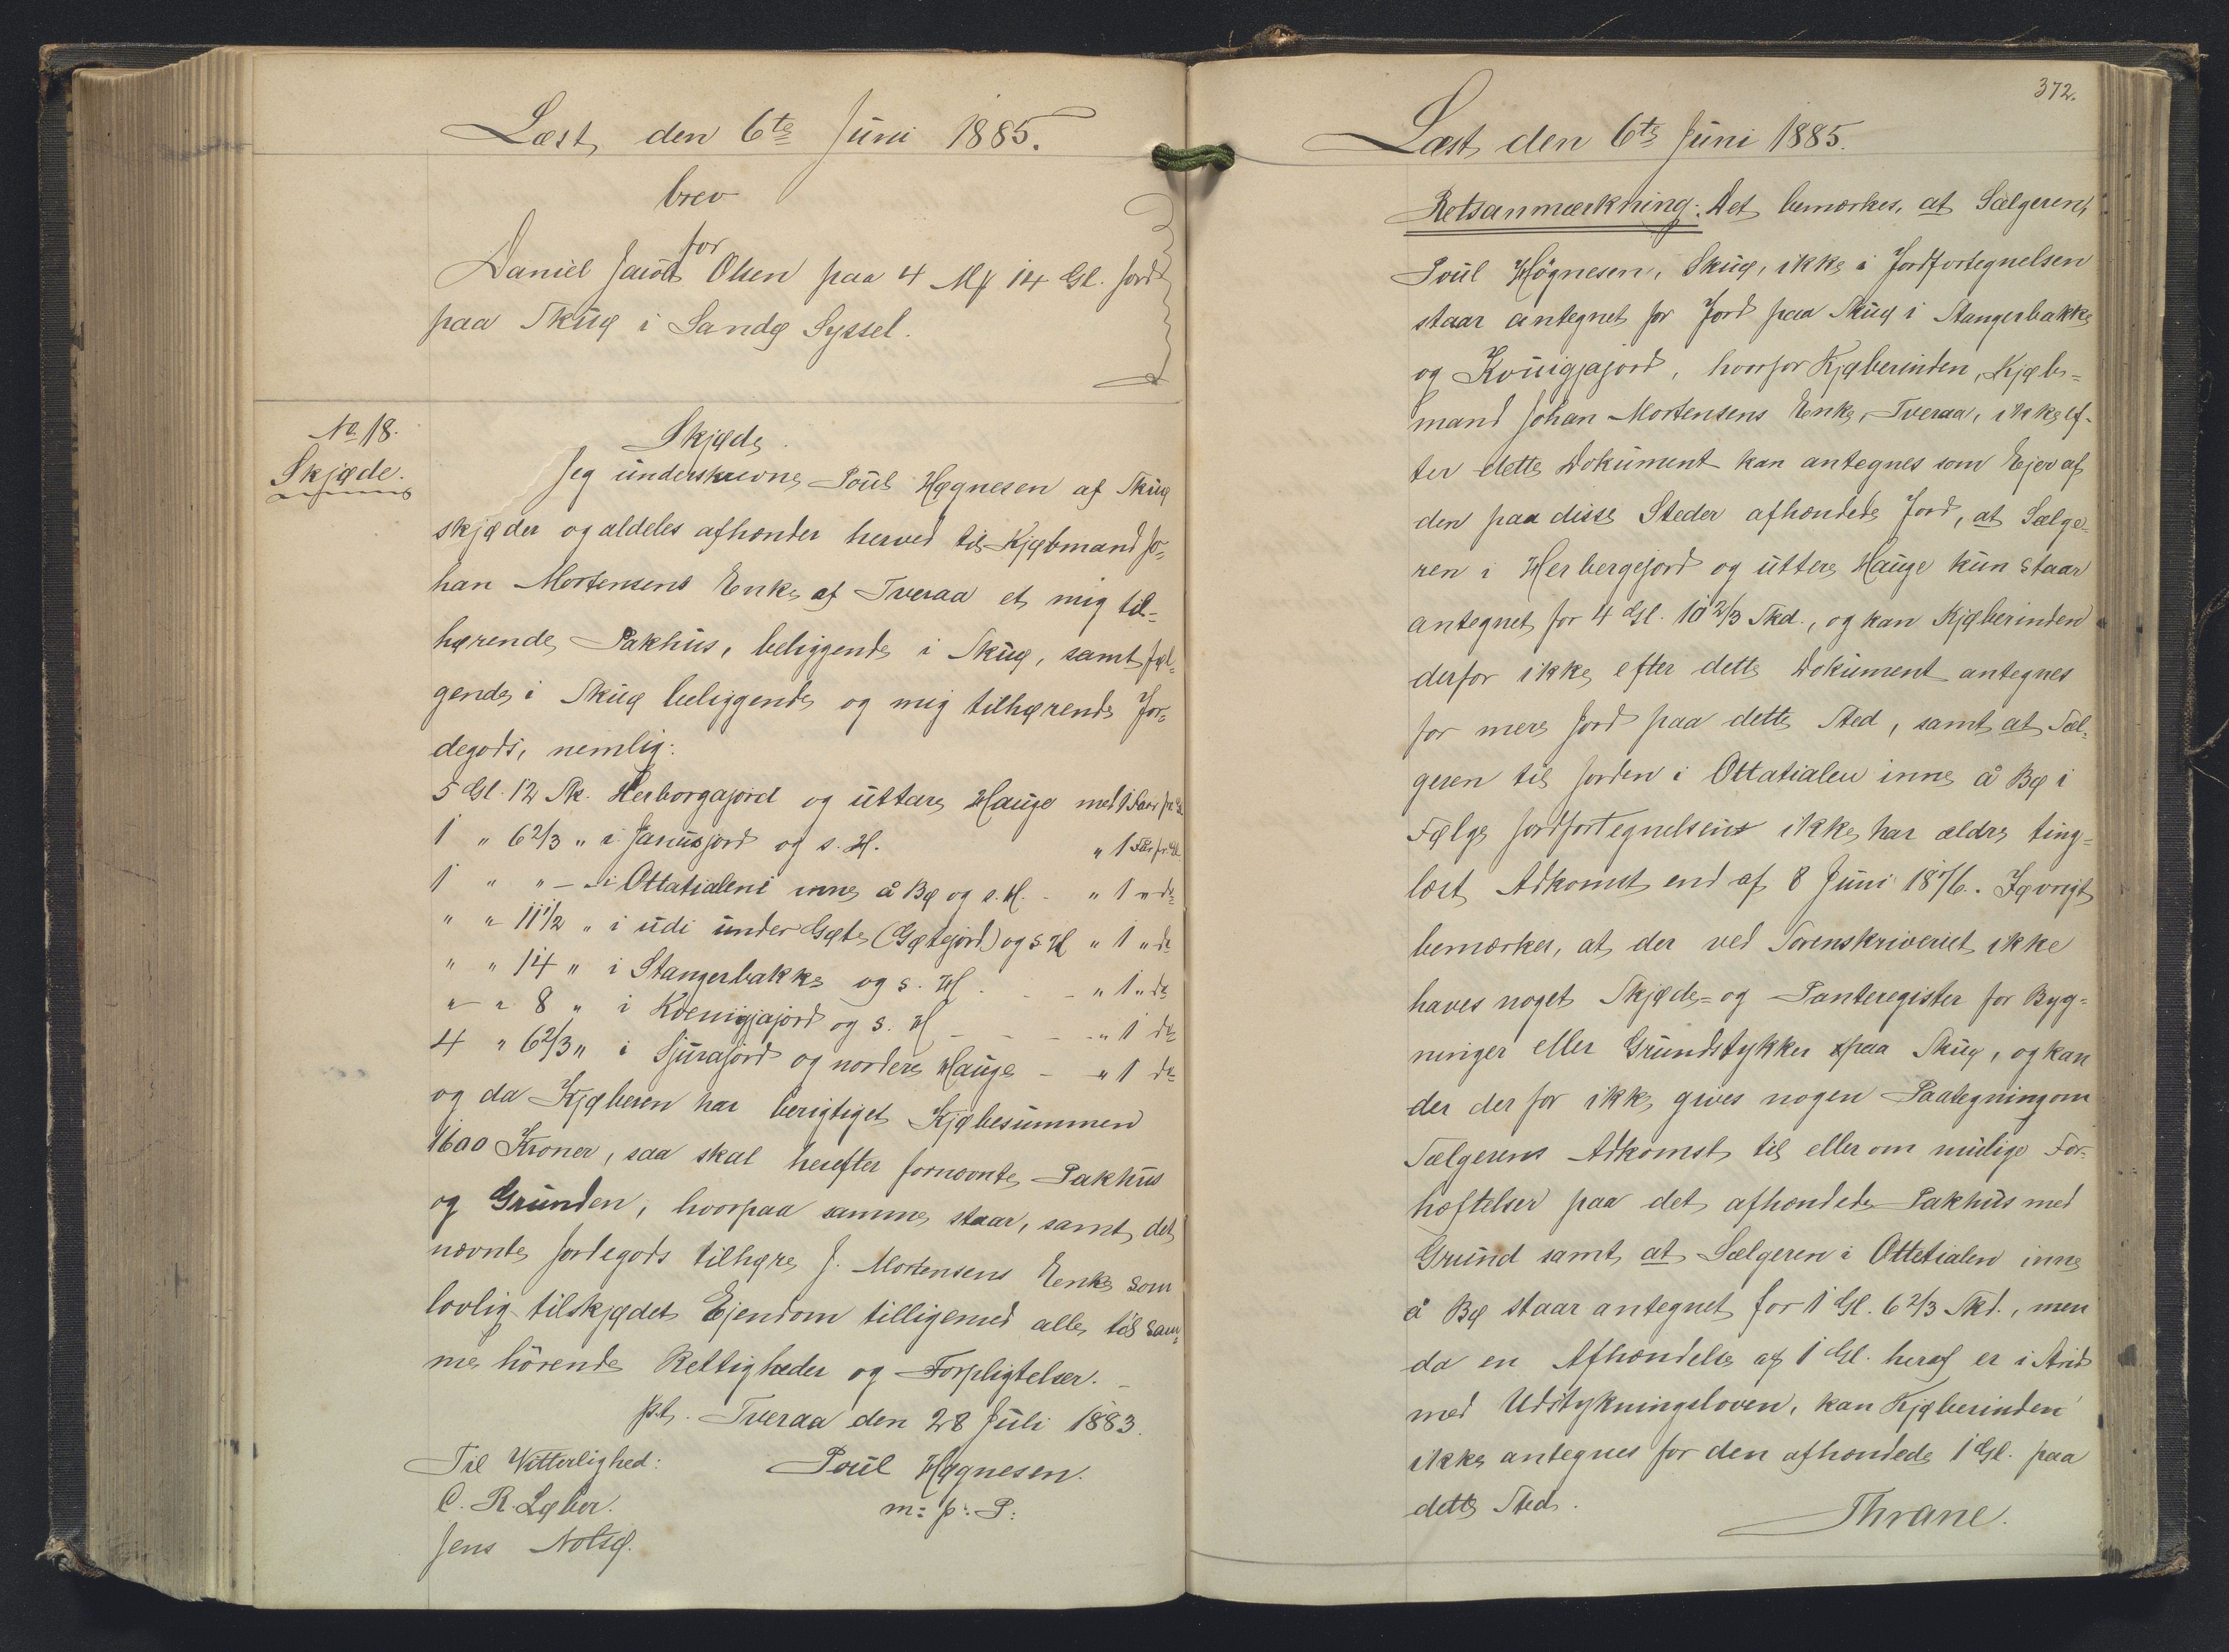 Læst den 6te Juni 1885.
brev
for
Daniel Jacob Olsen paa 4 Mk 14 Gl. Jord
paa Skuø i Sandø Syssel.
No 18.
Skjøde.
Skjøde.
Jeg underskrevne Poul Høgnesen af Skuø
skjøder og aldeles afhænder herved til Kjøbmand Jo-
han Mortensens Enke af Tveraa et mig til-
hørende Pakhus, beliggende i Skuø, samt føl-
gende i Skuø beliggende og mig tilhørende Jor-
degods, nemlig:
5 Gl. 12 Sk. Herborgajord og uttare Hauge med 1 Faar pr. Gl.
1 " 6 2/3 " i Janusjord og s. H. " 1 Faar pr. Gl.
1 " " - i Ottatialeni inne å Bø og s. H. - " 1 " do
" " 11 1/2 " i udi under Gøte (Gøtejord) og s. H " 1 " do
" " 14 " i Stangerbakke og s. H. - - " 1 " do
" " 8 " i Kvenigjajord og s. H - - - " 1 do
4 " 6 2/3 " i Sjurajord og nordere Hauge - " 1 do
og da Kjøberen har berigtiget Kjøbesummen
1600 Kroner, saa skal herefter fornævnte Pakhus
og Grunden, hvorpaa samme staar, samt det
nævnte Jordegods tilhøre J. Mortensens Enke som
lovlig tilskjødet Ejendom tilligemed alle til sam-
me hörende Rettigheder og Forpligtelser. -
p.t. Tveraa den 28 Juli 1883.
Til Vitterlighed: Poul Høgnesen.
C. R. Løber. m: p: P:
Jens Nolsø.
372.
Læst den 6te Juni 1885.
Retsanmærkning: Det bemærkes, at Sælgeren,
Poul Högnesen, Skuø, ikke i Jordfortegnelsen
staar antegnet for Jord paa Skuø i Stangerbakke
og Kvuigjajord, hvorfor Kjøberinden, Kjøb-
mand Johan Mortensens Enke, Tveraa, ikke ef-
ter dette Dokument kan antegnes som Ejer af
den paa disse Steder afhændede Jord, at Sælge-
ren i Herbergejord og uttere Hauge kun staar
antegnet for 4 Gl. 10 2/3 Skd., og kan Kjøberinden
derfor ikke efter dette Dokument antegnes
for mere Jord paa dette Sted, samt at Sæl-
geren til Jorden i Ottatialen inne å Bø i
Følge Jordfortegnelsen ikke har ældre ting-
læst Adkomst end af 8 Juni 1876. Iøvrigt
bemærkes, at der ved Sorenskriveriet ikke
haves noget Skjøde- og Panteregister for Byg-
ninger eller Grundstykker paa Skuø, og kan
der der for ikke gives nogen Paategning om
Sælgerens Adkomst til eller om mulige For-
hæftelser paa det afhændede Pakhus med
Grund samt at Sælgeren i Ottetialen inne
å Bø staar antegnet for 1 Gl. 6 2/3 Skd., men
da en Afhændelse af 1 Gl. heraf er i Strid
med Udstykningsloven, kan Kjøberinden
ikke antegnes for den afhændede 1 Gl. paa
dette Sted.
Thrane.